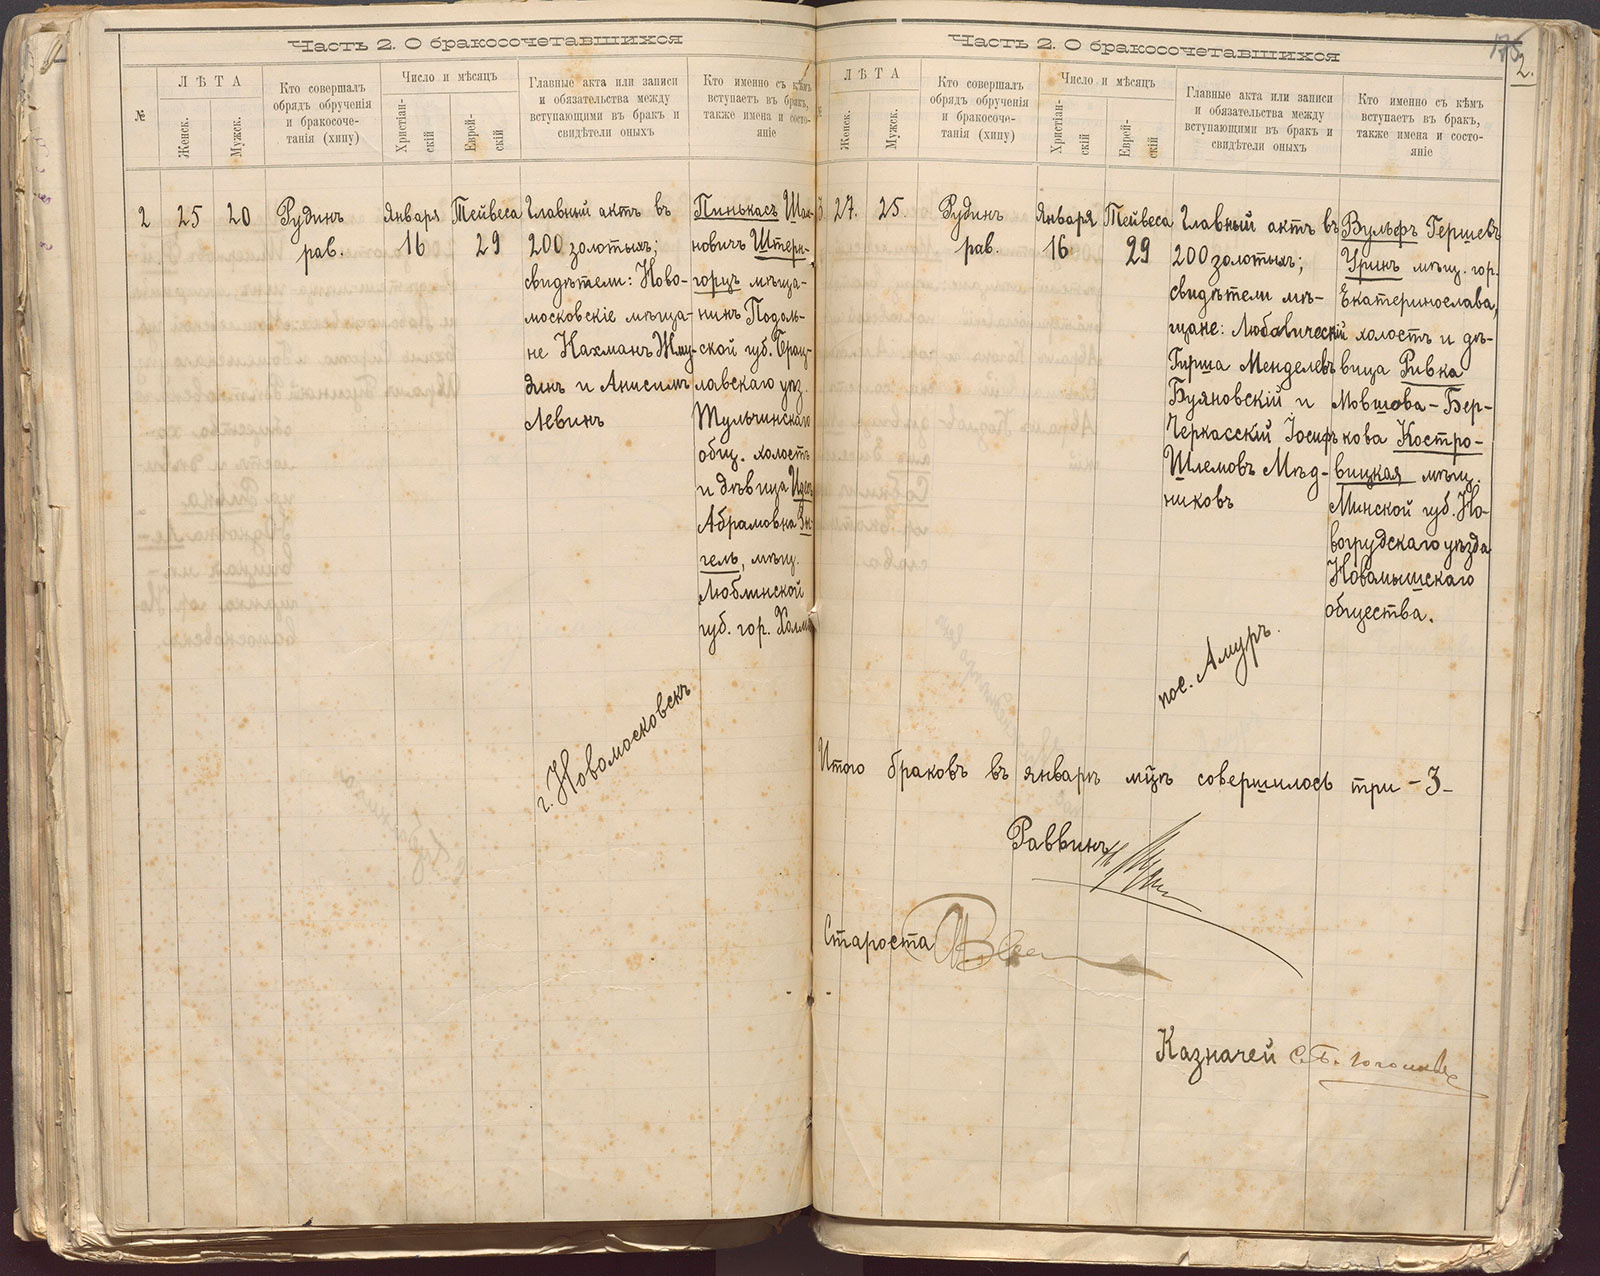 Часть 2. О бракосочетавшихся
№
ЛѢТА
Женск.
Мужск.
Кто совершалъ
обрядъ обрученія
и бракосоче-
танія (хипу)
Число и мѣсяцъ
Христіан-
скій
Еврей-
скій
Главные акта или записи
и обязательства между
вступающими въ бракъ и
свидѣтели оныхъ
Кто именно съ кѣмъ
вступаетъ въ бракъ,
также имена и состо-
яніе
2
25
20
Рудинъ
рав.
Января
16
Тейвеса
29
Главный актъ въ
200 золотыхъ;
свидѣтели: Ново-
московскіе мѣща-
не Нахманъ Жму-
динъ и Анисимъ
Левинъ
Пинькасъ Шах-
новичъ Штерн-
горцъ мѣща-
нинъ Подоль-
ской губ. Брац-
лавскаго уѣз.
Тульчинскаго
общ. холостъ
и дѣвица
Абрамовна Эн-
гель, мѣщ.
Люблинской
губ. гор. Холма
г. Новомосковскъ
Часть 2. О бракосочетавшихся
175
2.
№
ЛѢТА
Женск.
Мужск.
Кто совершалъ
обрядъ обрученія
и бракосоче-
танія (хипу)
Число и мѣсяцъ
Христіан-
скій
Еврей-
скій
Главные акта или записи
и обязательства между
вступающими въ бракъ и
свидѣтели оныхъ
Кто именно съ кѣмъ
вступаетъ въ бракъ,
также имена и состо-
яніе
3.
27.
25.
Рудинъ
рав.
Января
16
Тейвеса
29
Главный актъ въ
200 золотыхъ;
свидѣтели мѣ-
щане: Любавическій
Гирша Менделевъ
Буяновскій и
Черкасскій Іосифъ
Шлемовъ Мѣд-
никовъ
Вульфъ Гершевъ
Уринъ мѣщ. гор.
Екатеринослава,
холостъ и дѣ-
вица Ривка
Мовшова-Бер-
кова Костро-
вицкая мѣщ.
Минской губ. Но-
вогрудскаго уѣзда
Новомышскаго
общества.
пос. Амуръ.
Итого браковъ въ январѣ мцѣ совершилось три -3-
Раввинъ
Староста
Казначей